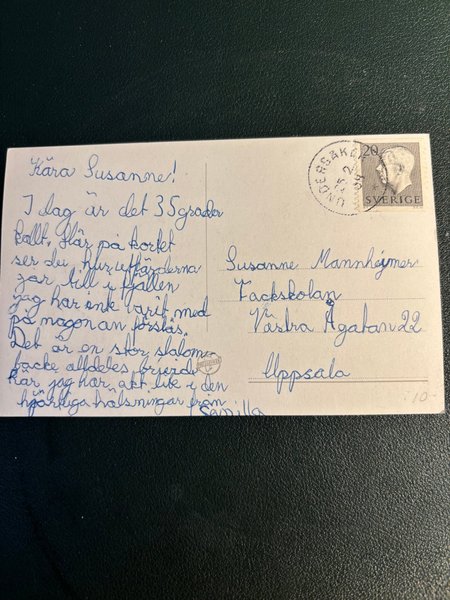 Kära Susanne!
I dag är det 35 grader
kallt. Här på kortet
ser du hur utfärderna
går till i fjällen
jag har ink varit med
på någon an förstås.
Det är en stor slalom-
backe alldeles
här jag har åkt lite i den
hjärtliga hälsningar från
UNDERSÅKER
15 2
20
SVERIGE
Susanne Mannheimer
Fackskolan
Västra Ågatan 22
Uppsala
10-